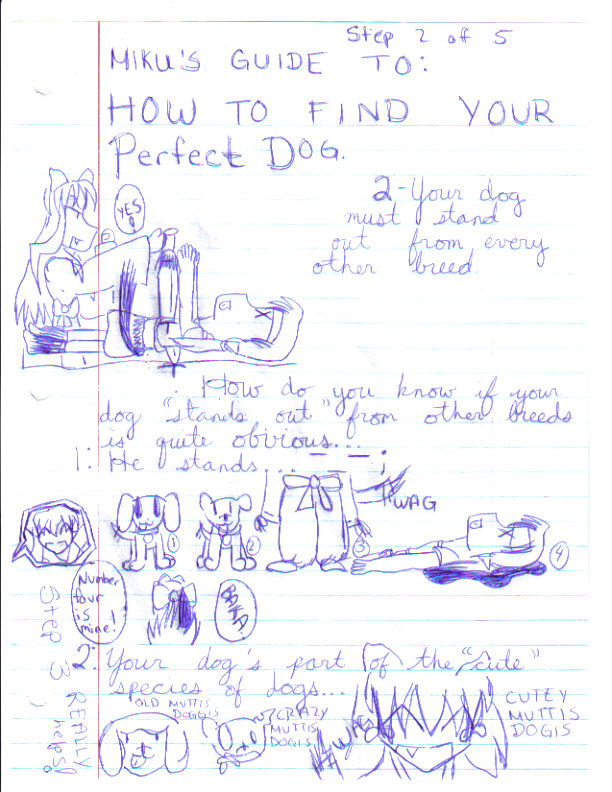 Step 2 of 5
MIKU'S GUIDE TO:
HOW TO FIND YOUR
Perfect DOG.
YES!
2-Your dog
must stand
out from every
other breed.
How do you know if your
dog "stands out" from other breeds
is quite obvious...
1: He stands...
WAG
1
2
3
4
Number
four
is
mine!
BAKA!
2: Your dog's part of the "cute"
species of dogs...
OLD MUTTIS
DOGGIS
CRAZY
MUTTIS
DOGIS
WAG
CUTEY
MUTTIS
DOGIS
Step 3 REALLY
helps!